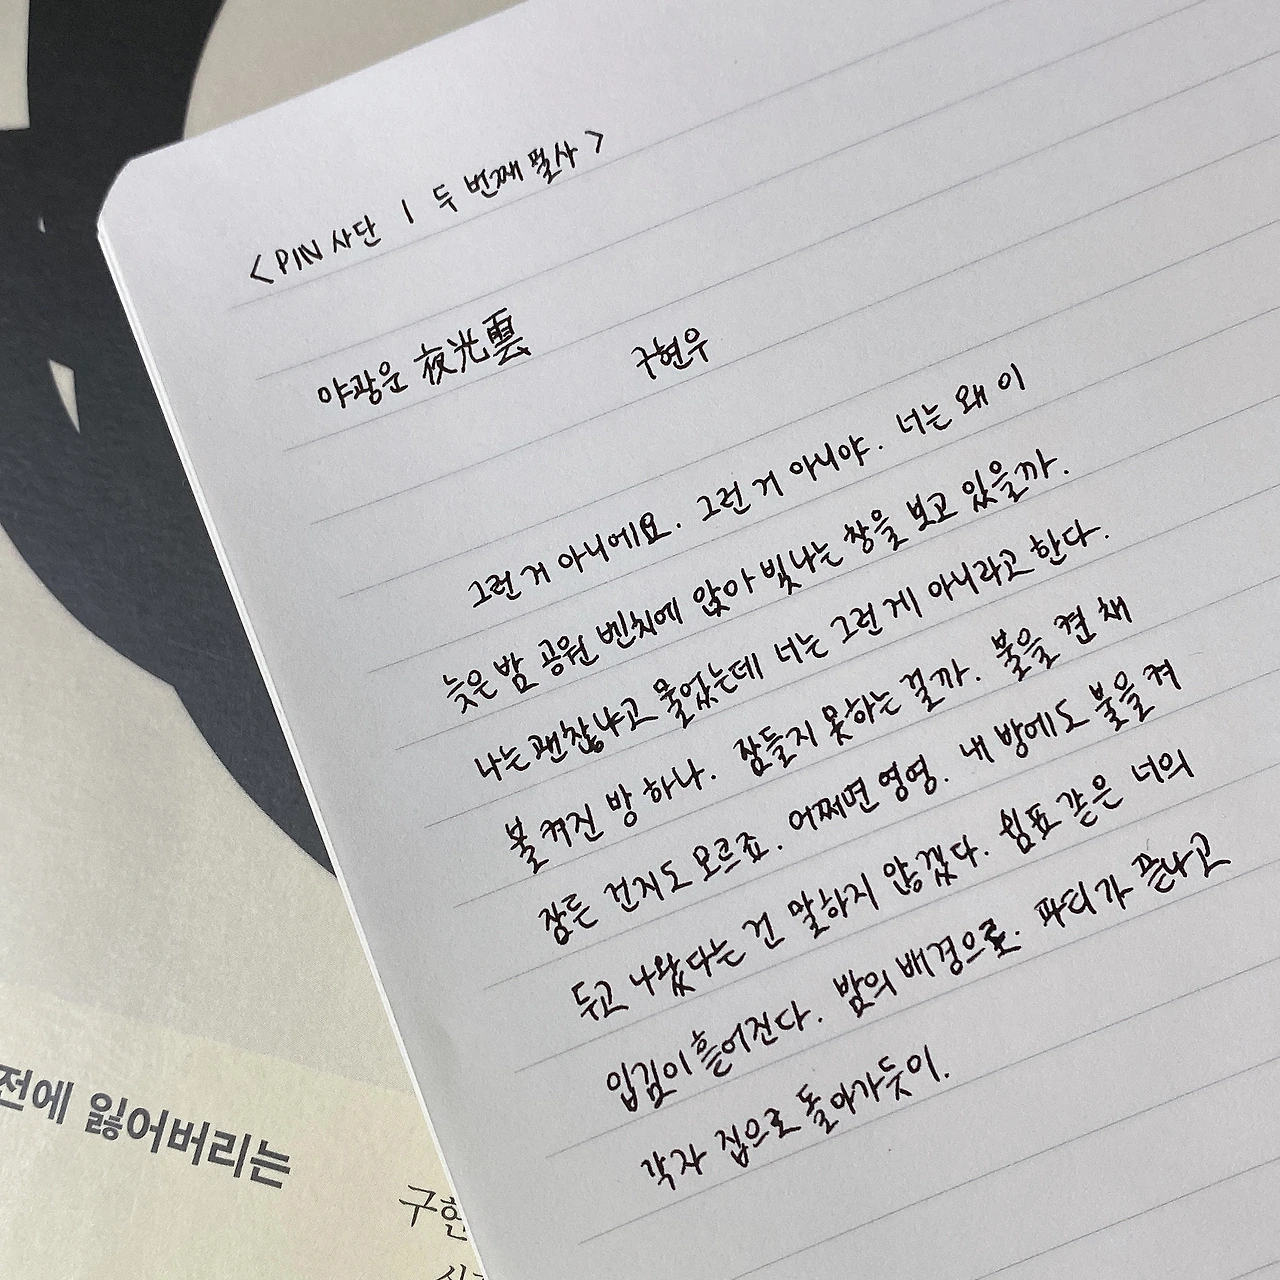 < PIN 사단 | 두 번째 필사 >
야광운 夜光雲 구현우
그런 거 아니에요. 그런 거 아니야. 너는 왜 이
늦은 밤 공원 벤치에 앉아 빛나는 창을 보고 있을까.
나는 괜찮냐고 물었는데 너는 그런 게 아니라고 한다.
불 켜진 방 하나. 잠들지 못하는 걸까. 불을 켠 채
잠든 건지도 모르죠. 어쩌면 영영. 내 방에도 불을 켜
두고 나왔다는 건 말하지 않겠다. 쉼표 같은 너의
입김이 흩어진다. 밤의 배경으로. 파티가 끝나고
각자 집으로 돌아가듯이.
전에 잃어버리는
구현